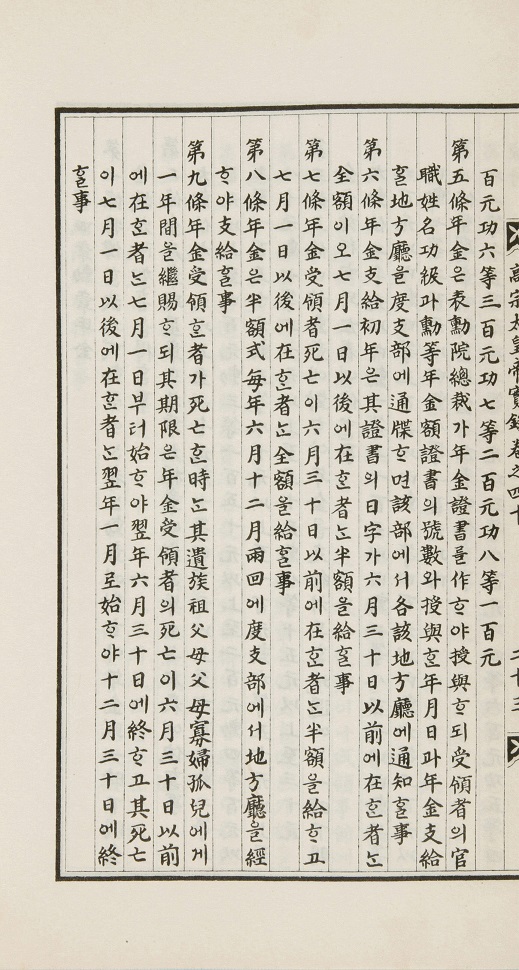 高宗太皇帝實錄卷之四十 二十三
百元功六等三百元功七等二百元功八等一百元
第五條年金은表勳院總裁가年金證書를作ᄒᆞ야授與ᄒᆞ되受領者의官
職姓名功級과勳等年金額證書의號數와授與ᄒᆞᆫ年月日과年金支給
ᄒᆞᆯ地方廳을度支部에通牒ᄒᆞ면該部에서各該地方廳에通知ᄒᆞᆯ事
第六條年金支給初年은其證書의日字가六月三十日以前에在ᄒᆞᆫ者ᄂᆞᆫ
全額이오七月一日以後에在ᄒᆞᆫ者ᄂᆞᆫ半額을給ᄒᆞᆯ事
第七條年金受領者死亡이六月三十日以前에在ᄒᆞᆫ者ᄂᆞᆫ半額을給ᄒᆞ고
七月一日以後에在ᄒᆞᆫ者ᄂᆞᆫ全額을給ᄒᆞᆯ事
第八條年金은半額式每年六月十二月兩回에度支部에서地方廳을經
ᄒᆞ야支給ᄒᆞᆯ事
第九條年金受領ᄒᆞᆫ者가死亡ᄒᆞᆫ時ᄂᆞᆫ其遺族祖父母父母寡婦孤兒에게
一年間을繼賜ᄒᆞ되其期限은年金受領者의死亡이六月三十日以前
에在ᄒᆞᆫ者ᄂᆞᆫ七月一日부터始ᄒᆞ야翌年六月三十日에終ᄒᆞ고其死亡
이七月一日以後에在ᄒᆞᆫ者ᄂᆞᆫ翌年一月로始ᄒᆞ야十二月三十日에終
ᄒᆞᆯ事